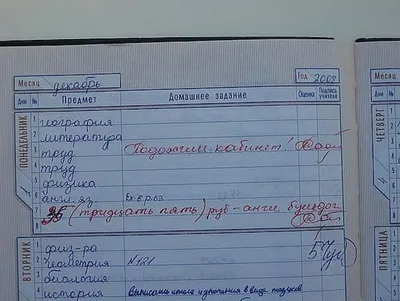 Месяц декабрь Год 2008
Дни № Предмет Домашнее задание Оценка Подпись учителя
ПОНЕДЕЛЬНИК
1 география
2 литература
3 труд Поджигли кабинет!
4 труд
5 физика
6 англ. яз Ex 6 p 63
7 35 (тридцать пять) руб - англ. бульдог
8
ВТОРНИК
1 физ-ра
2 геометрия N 121 5
3 биология
4 история Выписать итоги изучения в виде тезисов
Месяц
Дни №
ЧЕТВЕРГ
1
2
3
4
5
6
7
8
ПЯТНИЦА
1
2
3
4